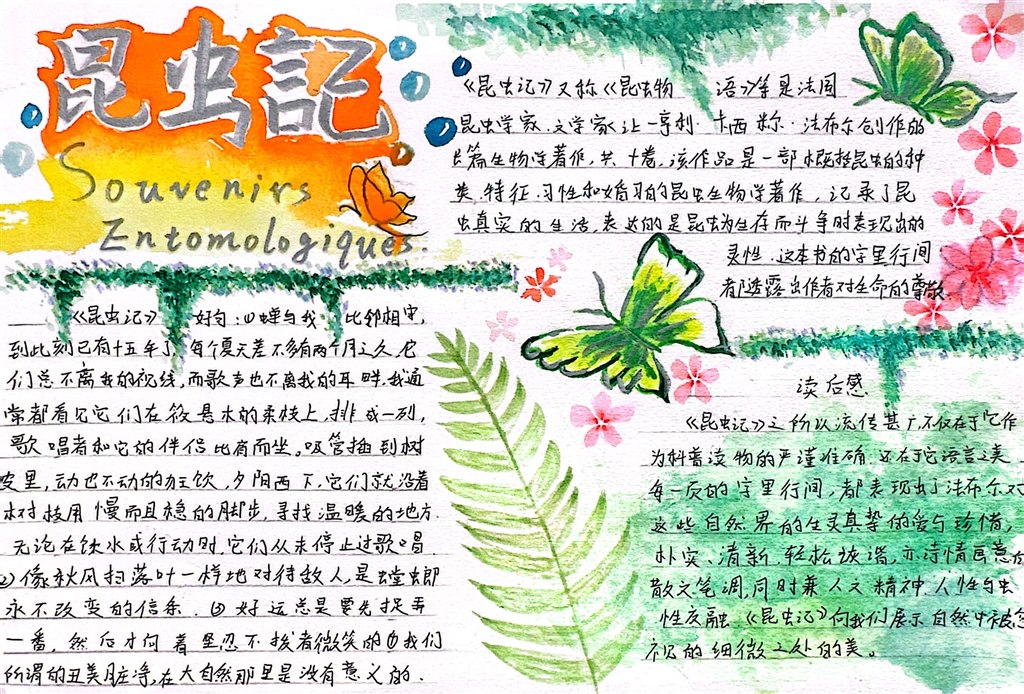 昆虫記
Souvenirs
Entomologiques.
《昆虫记》又称《昆虫物语》等是法国
昆虫学家.文学家让-亨利·卡西米尔·法布尔创作的
长篇生物学著作,共十卷,该作品是一部概括昆虫的种
类.特征.习性和婚习的昆虫生物学著作,记录了昆
虫真实的生活,表达的是昆虫为生存而斗争时表现出的
灵性.这本书的字里行间
都透露出作者对生命的尊敬.
《昆虫记》好句:⑴蝉与我比邻相守,
到此刻已有十五年了,每个夏天差不多有两个月之久它
们总不离我的视线,而歌声也不离我的耳畔.我通
常都看见它们在筱悬木的柔枝上,排成一列,
歌唱者和它的伴侣比肩而坐。吸管插到树
皮里,动也不动的狂饮,夕阳西下,它们就沿着
树枝用慢而且稳的脚步,寻找温暖的地方.
无论在饮水或行动时,它们从未停止过歌唱
像秋风扫落叶一样地对待敌人,是螳螂
永不改变的信条.好运总是要先捉弄
一番,然后才向着坚忍不拔者微笑的我们
所谓的丑美脏净,在大自然那里是没有意义的.
读后感
《昆虫记》之所以流传甚广,不仅在于它作
为科普读物的严谨准确.还在于它语言之美
每一页的字里行间,都表现出了法布尔对
这些自然界的生灵真挚的爱与珍惜,
朴实、清新、轻松诙谐,亦诗情画意的
散文笔调,同时兼人文精神.人性与虫
性交融.《昆虫记》向我们展示自然中被忽
视的细微之处的美。